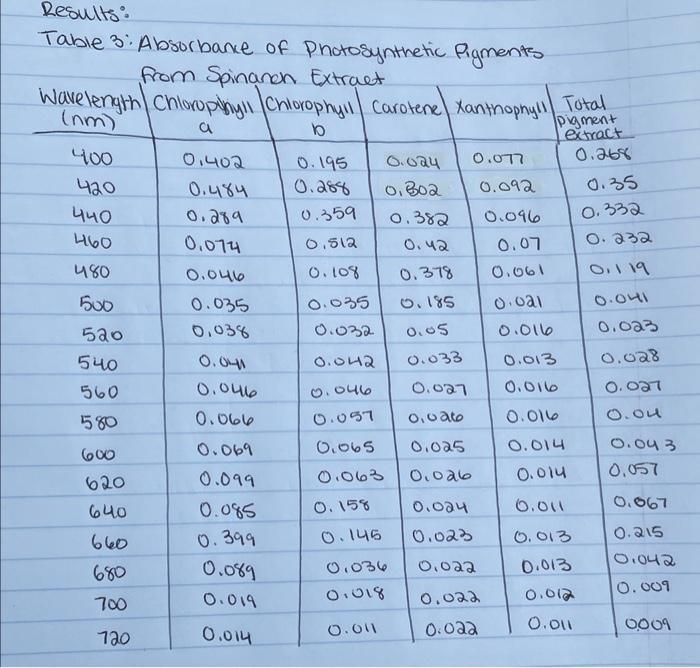 Results:
Table 3: Absorbance of Photosynthetic Pigments
from Spinanch Extract
Wavelength (nm) | Chlorophyll a | Chlorophyll b | Carotene | Xanthophyll | Total pigment extract
400 | 0.402 | 0.195 | 0.024 | 0.077 | 0.268
420 | 0.484 | 0.288 | 0.302 | 0.092 | 0.35
440 | 0.289 | 0.359 | 0.382 | 0.096 | 0.332
460 | 0.074 | 0.512 | 0.42 | 0.07 | 0.232
480 | 0.046 | 0.108 | 0.378 | 0.061 | 0.119
500 | 0.035 | 0.035 | 0.185 | 0.021 | 0.041
520 | 0.038 | 0.032 | 0.05 | 0.016 | 0.023
540 | 0.041 | 0.042 | 0.033 | 0.013 | 0.028
560 | 0.046 | 0.046 | 0.027 | 0.016 | 0.027
580 | 0.066 | 0.057 | 0.026 | 0.016 | 0.04
600 | 0.069 | 0.065 | 0.025 | 0.014 | 0.043
620 | 0.099 | 0.063 | 0.026 | 0.014 | 0.057
640 | 0.085 | 0.158 | 0.024 | 0.011 | 0.067
660 | 0.399 | 0.146 | 0.023 | 0.013 | 0.215
680 | 0.089 | 0.036 | 0.022 | 0.013 | 0.042
700 | 0.019 | 0.018 | 0.022 | 0.012 | 0.009
720 | 0.014 | 0.011 | 0.022 | 0.011 | 0.009